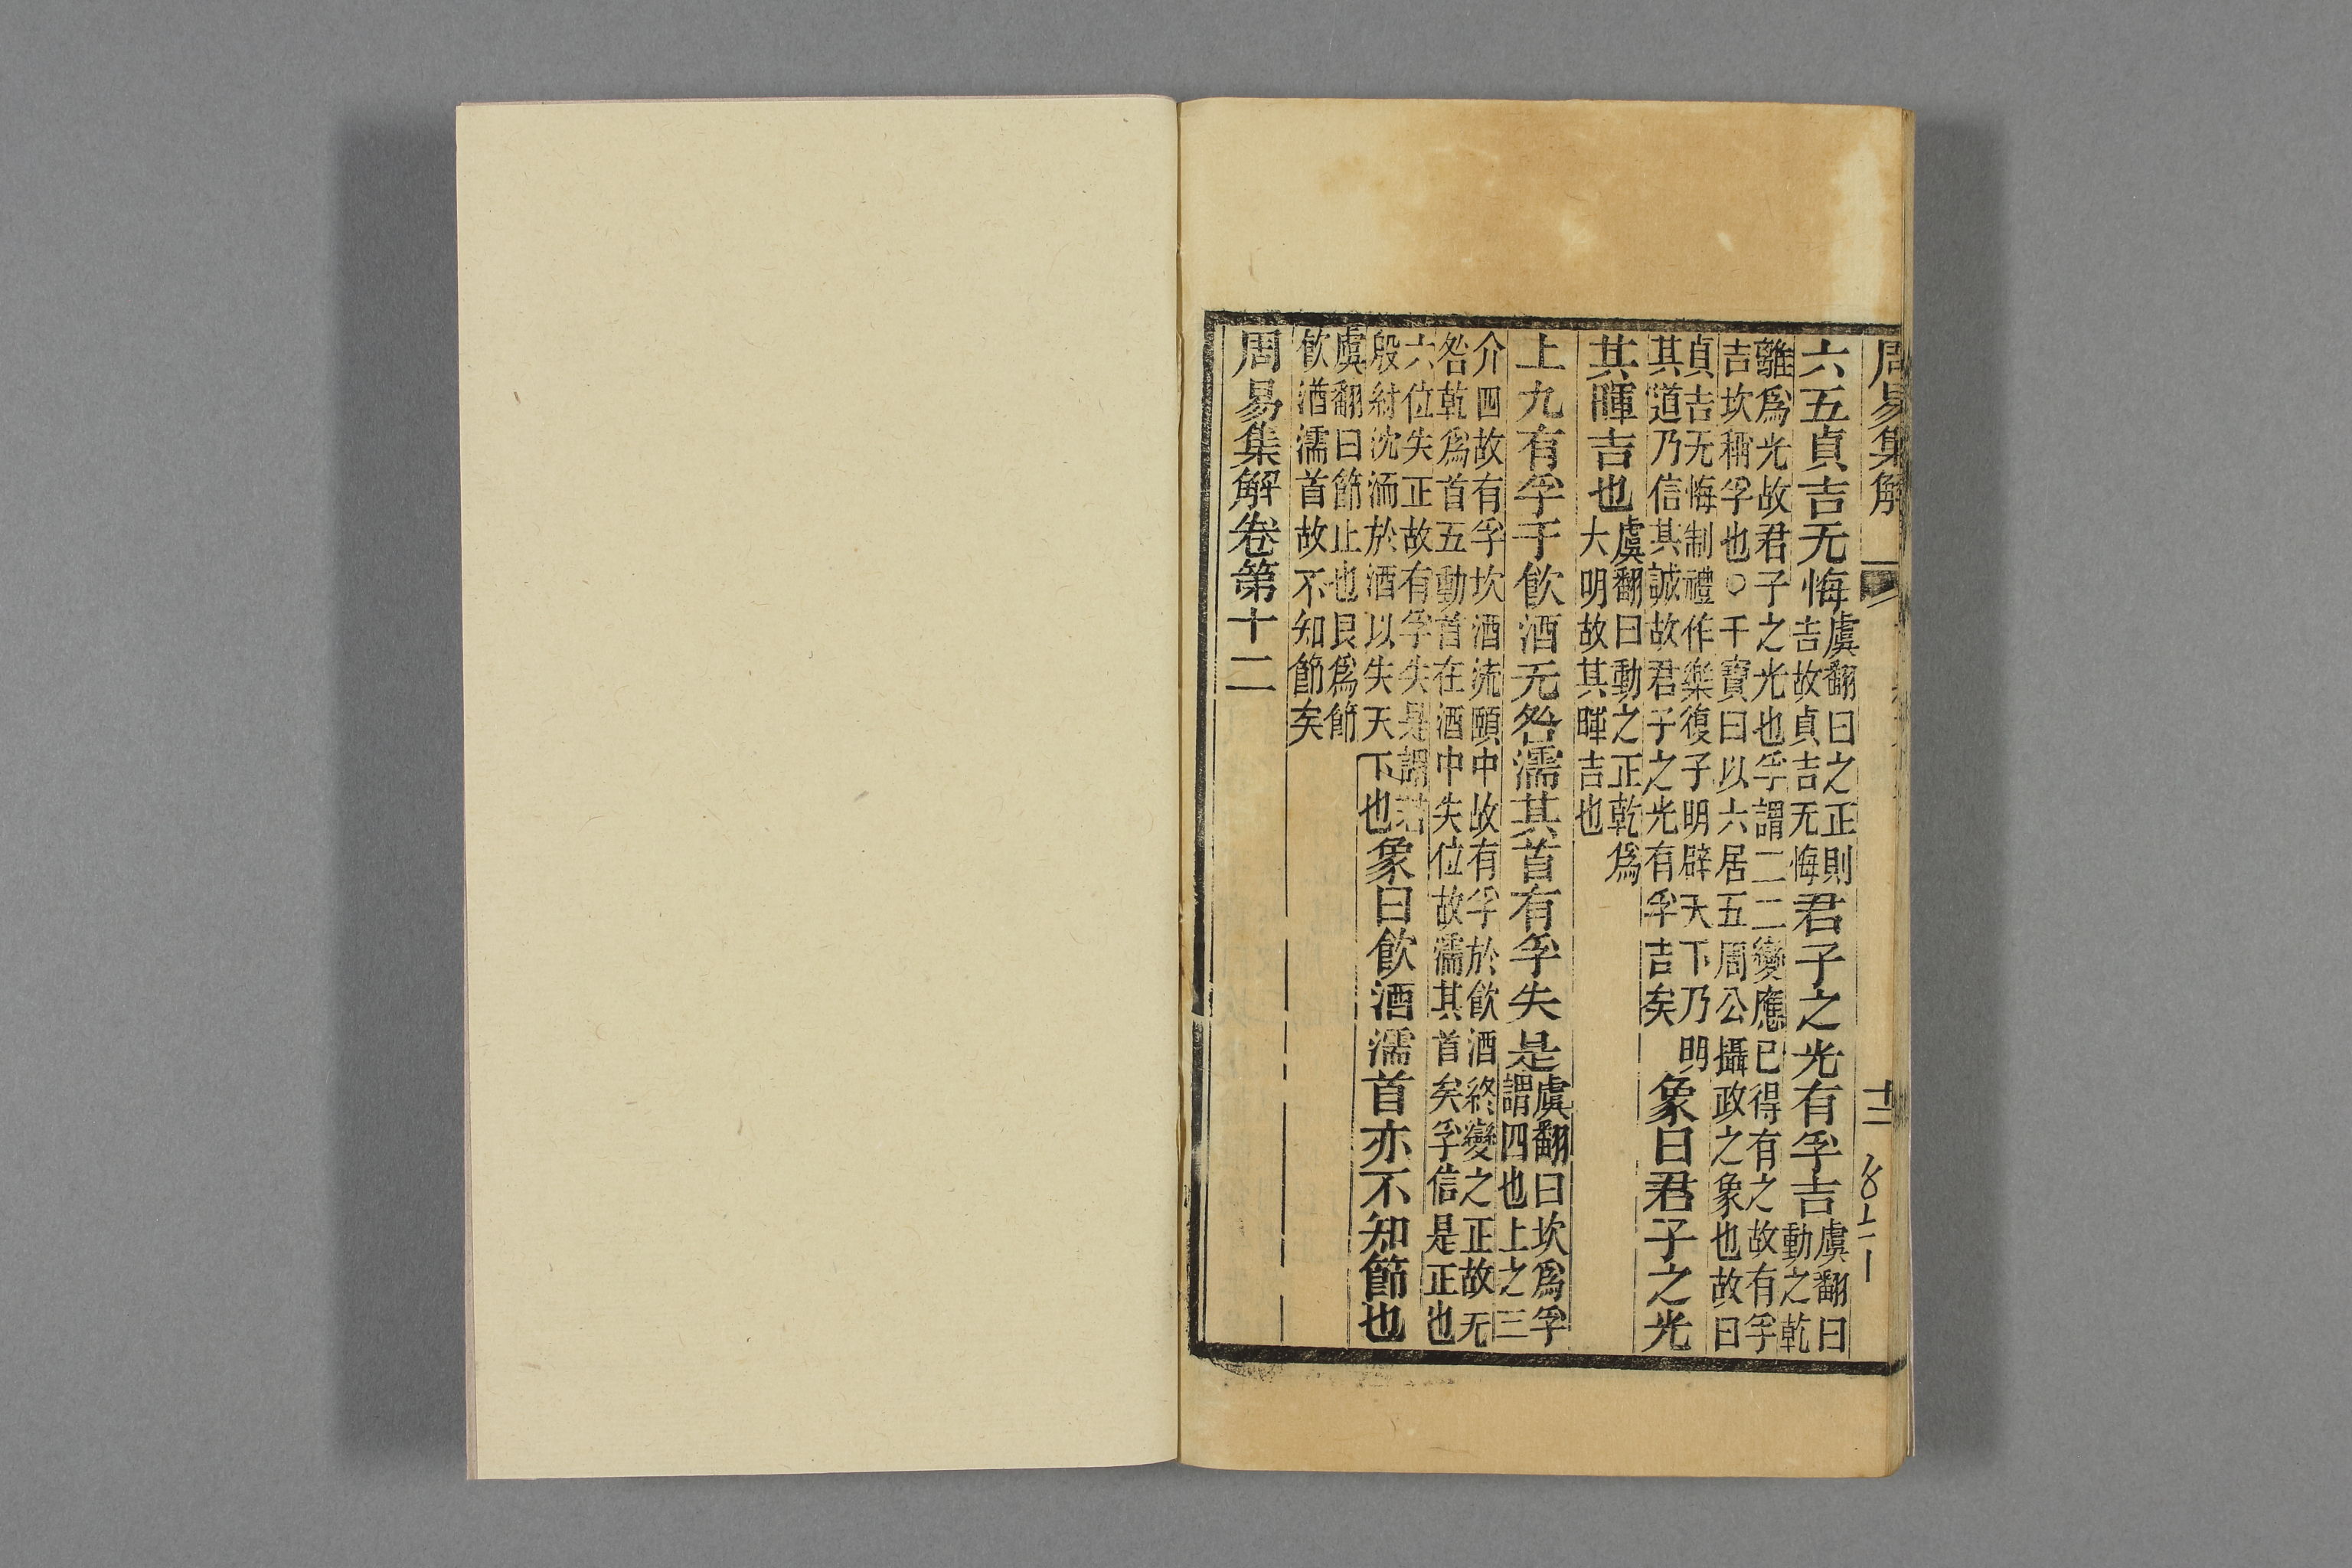 周易集解
十二
六五貞吉无悔虞翻曰之正則吉故貞吉无悔君子之光有孚吉虞翻曰動之乾
離爲光故君子之光也孚謂二二變應已得有之故有孚
吉坎稱孚也○干寶曰以六居五周公攝政之象也故曰
貞吉无悔制禮作樂復子明辟天下乃明
其道乃信其誠故君子之光有孚吉矣象曰君子之光
其暉吉也虞翻曰動之正乾爲大明故其暉吉也
上九有孚于飮酒无咎濡其首有孚失是虞翻曰坎爲孚謂四也上之三
介四故有孚坎酒流頤中故有孚於飮酒終變之正故无
咎乾爲首五動首在酒中失位故濡其首矣孚信是正也
六位失正故有孚失是謂若
殷紂沈湎於酒以失天下也象曰飮酒濡首亦不知節也
虞翻曰節止也艮爲節
飮酒濡首故不知節矣
周易集解卷第十二